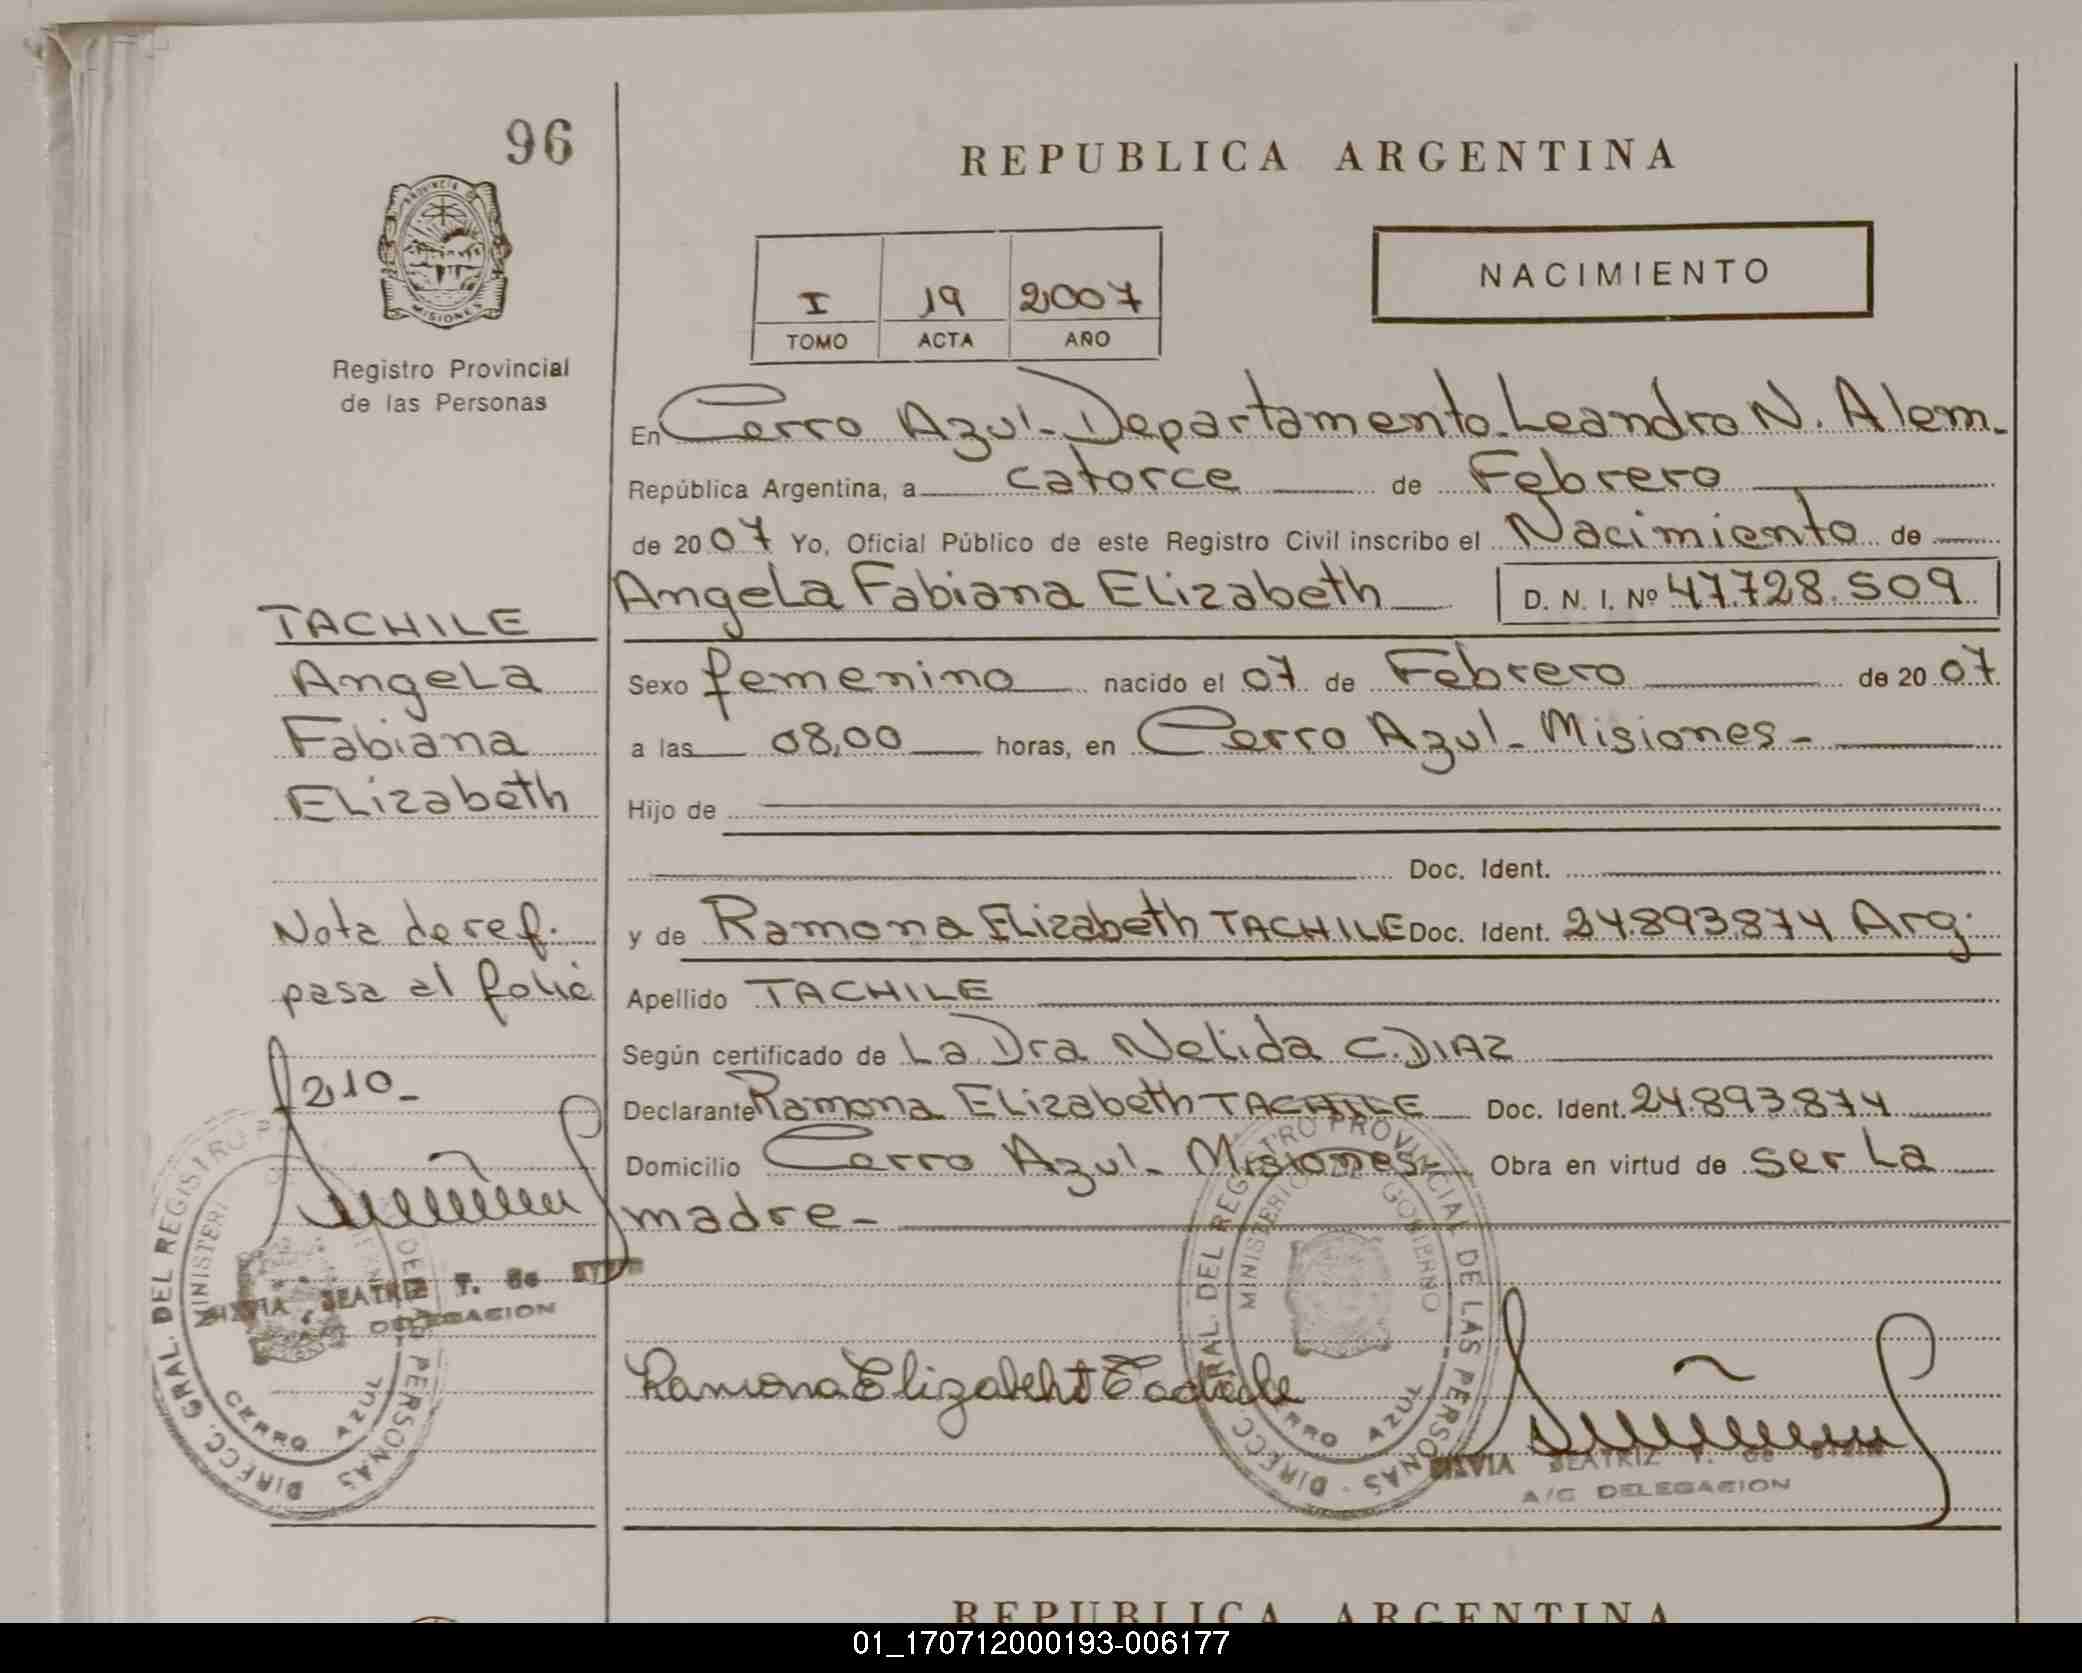 96
REPUBLICA ARGENTINA
PROVINCIA DE
MISIONES
Registro Provincial
de las Personas
I 19 2007
TOMO ACTA AÑO
NACIMIENTO
En Cerro Azul - Departamento Leandro N. Alem -
República Argentina, a catorce de Febrero
de 2007 Yo, Oficial Público de este Registro Civil inscribo el Nacimiento de
Angela Fabiana Elizabeth D. N. I. Nº 47.728.509
Sexo femenino nacido el 07 de Febrero de 2007
a las 08,00 horas, en Cerro Azul - Misiones -
Hijo de
Doc. Ident.
y de Ramona Elizabeth TACHILE Doc. Ident. 24.893.874 Arg.
Apellido TACHILE
Según certificado de La Dra Nelida C. DIAZ
Declarante Ramona Elizabeth TACHILE Doc. Ident. 24.893.874
Domicilio Cerro Azul - Misiones - Obra en virtud de ser la
madre -
TACHILE
Angela
Fabiana
Elizabeth
Nota de ref.
pasa al folio
210 -
DIRECC. GRAL. DEL REGISTRO DE LAS PERSONAS
CERRO AZUL
SILVIA BEATRIZ T. de
DELEGACION
DIRECC. GRAL. DEL REGISTRO PROVINCIAL DE LAS PERSONAS
MINISTERIO DE GOBIERNO
CERRO AZUL
Ramona Elizabeht Tachile
SILVIA BEATRIZ T. de
A/C DELEGACION
REPUBLICA ARGENTINA
01_170712000193-006177